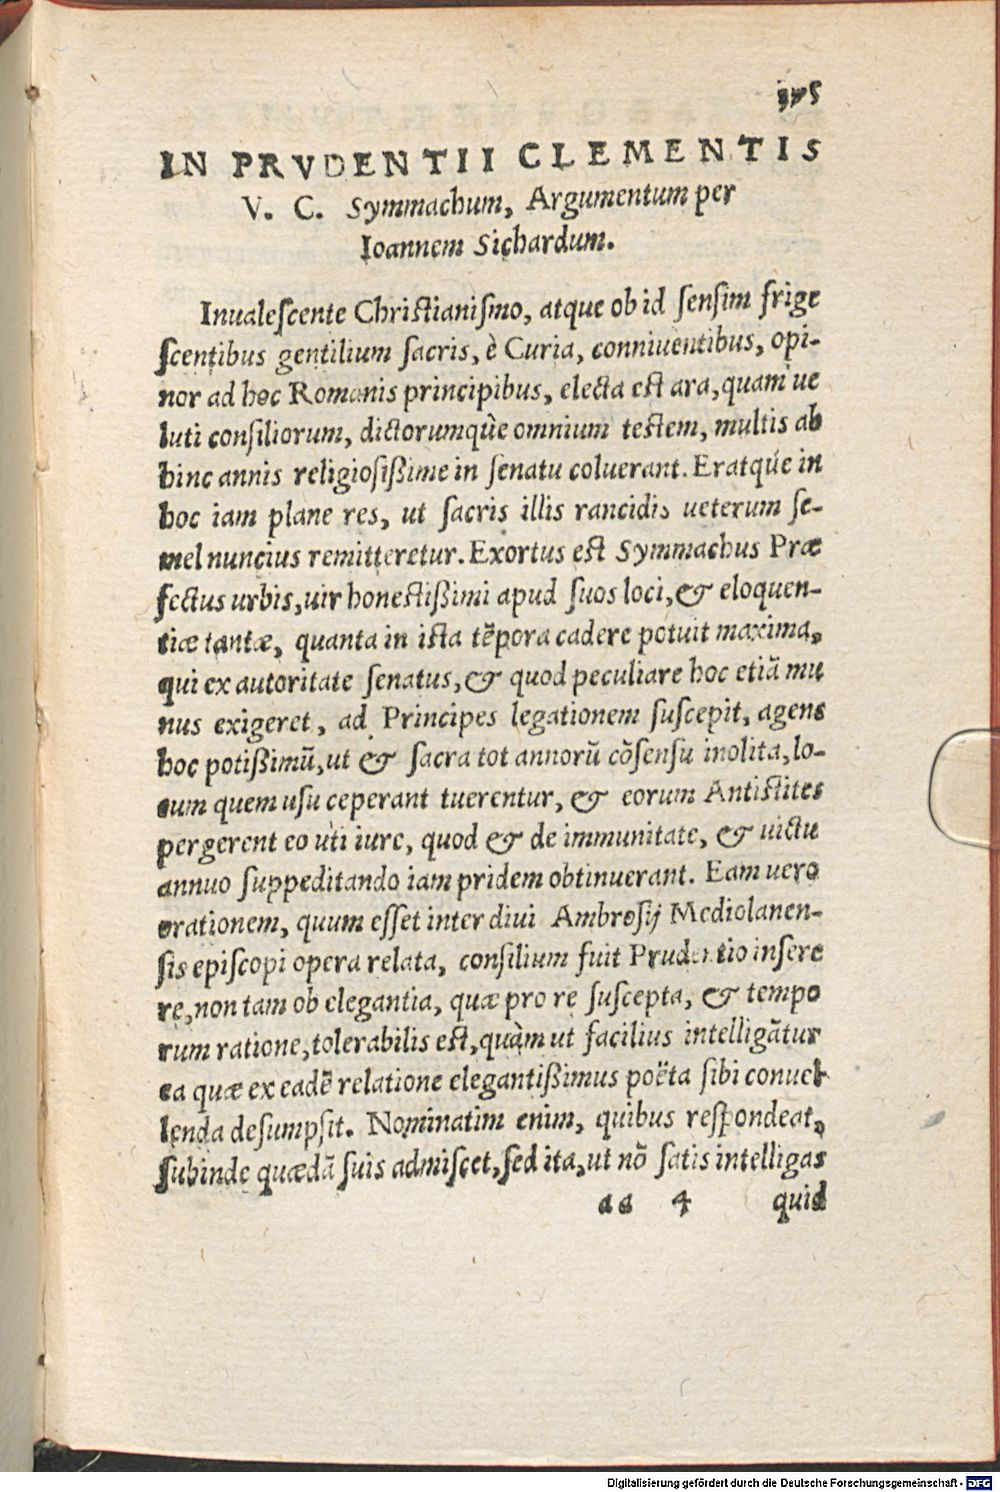 375
IN PRVDENTII CLEMENTIS
V. C. Symmachum, Argumentum per
Ioannem Sichardum.
Inualeſcente Chriſtianiſmo, atque ob id ſenſim frige
ſcentibus gentilium ſacris, è Curia, conniuentibus, opi-
nor ad hoc Romanis principibus, electa eſt ara, quam ue
luti conſiliorum, dictorumq́ue omnium teſtem, multis ab
hinc annis religioſißime in ſenatu coluerant. Eratq́ue in
hoc iam plane res, ut ſacris illis rancidis ueterum ſe-
mel nuncius remitteretur. Exortus eſt Symmachus Præ
fectus urbis, uir honeſtißimi apud ſuos loci, & eloquen-
tiæ tantæ, quanta in iſta tẽpora cadere potuit maxima,
qui ex autoritate ſenatus, & quod peculiare hoc etiã mu
nus exigeret, ad Principes legationem ſuſcepit, agens
hoc potißimũ, ut & ſacra tot annorũ cõſenſu inolita, lo-
cum quem uſu ceperant tuerentur, & eorum Antiſtites
pergerent eo uti iure, quod & de immunitate, & uictu
annuo ſuppeditando iam pridem obtinuerant. Eam uero
orationem, quum eſſet inter diui Ambroſij Mediolanen-
ſis epiſcopi opera relata, conſilium fuit Prudentio inſere
re, non tam ob elegantia, quæ pro re ſuſcepta, & tempo
rum ratione, tolerabilis eſt, quàm ut facilius intelligãtur
ea quæ ex eadẽ relatione elegantißimus poëta ſibi conuel
lenda deſumpſit. Nominatim enim, quibus reſpondeat,
ſubinde quædã ſuis admiſcet, ſed ita, ut nõ ſatis intelligas
aa 4 quid
Digitalisierung gefördert durch die Deutsche Forschungsgemeinschaft - DFG